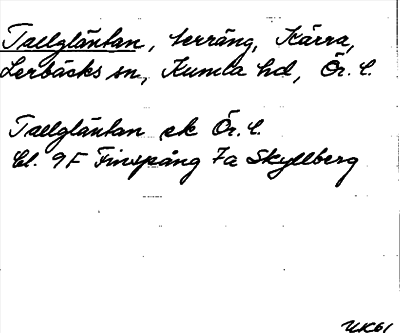 Tallgläntan, terräng, Kärra,
Lerbäcks sn, Kumla hd, Ör. l.
Tallgläntan ek Ör. l.
bl. 9F Finspång 7a Skyllberg
UK61